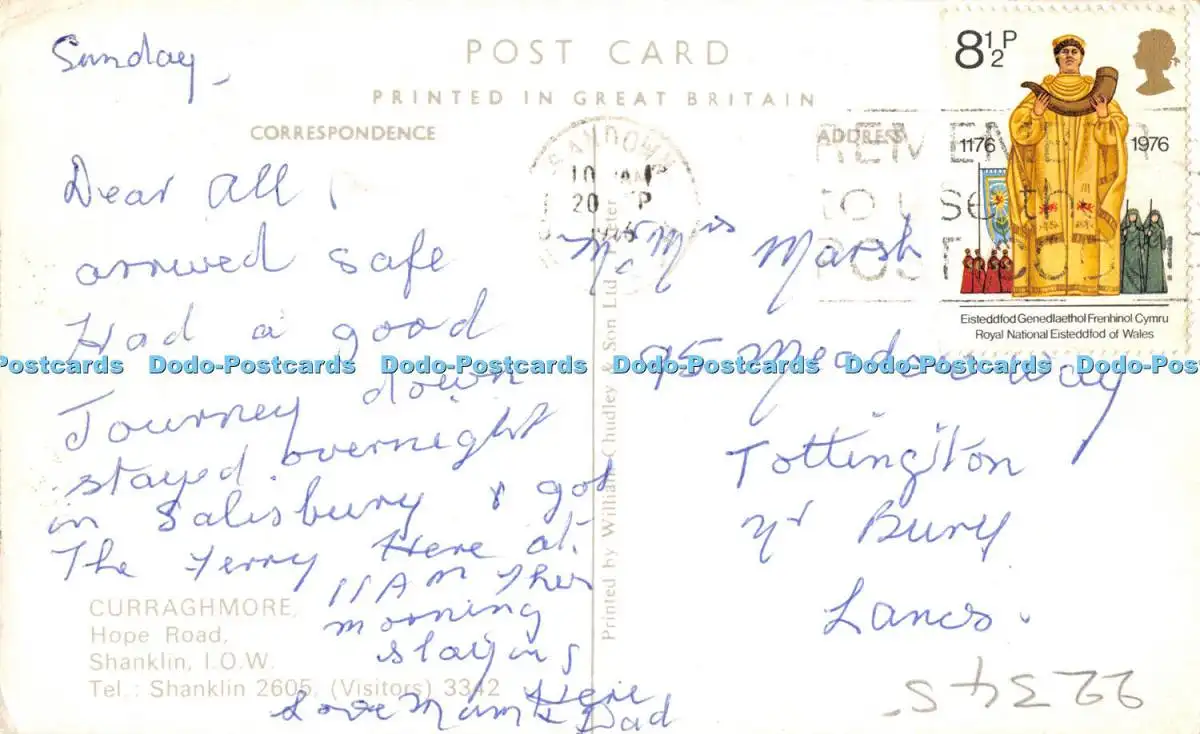 Sunday
POST CARD
PRINTED IN GREAT BRITAIN
CORRESPONDENCE
Dear All
arrived safe
Had a good
Journey down
stayed overnight
in Salisbury & got
The Ferry Here at
11AM This
morning
staying
Here
Love Mam & Dad
CURRAGHMORE,
Hope Road,
Shanklin, I.O.W.
Tel.: Shanklin 2605, (Visitors) 3342
Printed by William Chudley & Son Ltd
SANDOWN
10
20
ADDRESS
REMEMBER
to use the
POST CODE!
8½P
1176
1976
Eisteddfod Genedlaethol Frenhinol Cymru
Royal National Eisteddfod of Wales
Mr Mrs Marsh
95 Meadow way
Tottington
Nr Bury
Lancs.
22345
Postcards Dodo-Postcards Dodo-Postcards Dodo-Postcards Dodo-Postcards Dodo-Pos